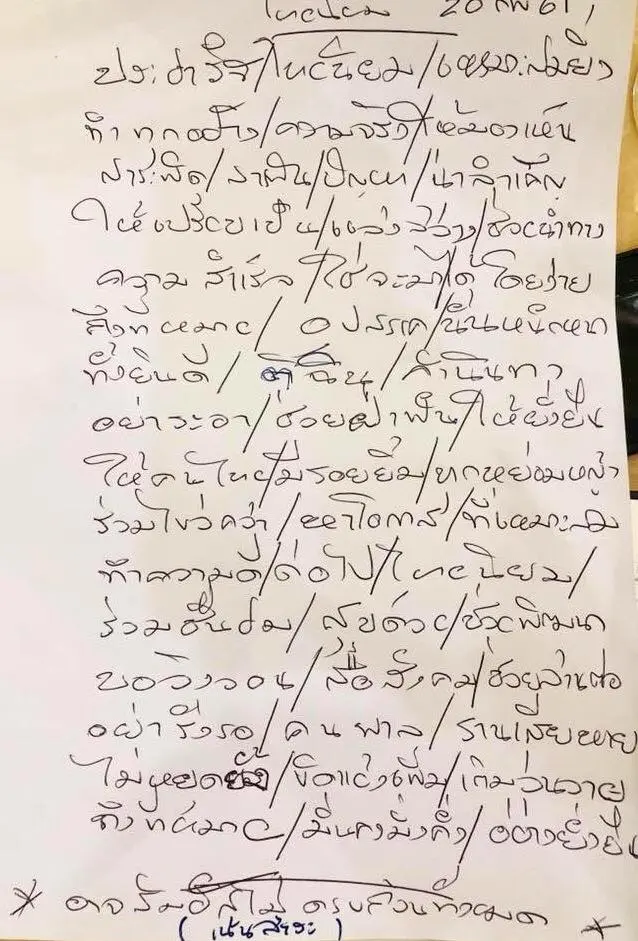 ไทยนิยม 20 กพ 61
ประชารัฐ/ไทยนิยม/เหมาะสมยิ่ง
ทำทุกอย่าง/ความจริง/ให้มาเห็น
สาระผิด/ราคิน/ปัญหา/น่าลำเค็ญ
ให้เปรียบเป็น/แสงสว่าง/ช่วยนำทาง
ความสำเร็จ/ใช่จะมาได้โดยง่าย
ถึงที่หมาย/อุปสรรค/นั้นหนักหนา
ทั้งยินดี/ติฉิน/คำนินทา
อย่าระอา/ช่วยฝ่าฟัน/ให้ยั่งยืน
ให้คนไทย/มีรอยยิ้ม/ทุกหย่อมหญ้า
ร่วมไขว่คว้า/หาโอกาส/ที่เหมาะสม
ทำความดี/ต่อไป/ไทยนิยม/
ร่วมชื่นชม/สืบต่อ/ช่วยพัฒนา
ขอวิงวอน/สื่อสังคม/ช่วยสานต่อ
อย่ารีรอ/คนพาล/รานเสียหาย
ไม่หยุดยั้ง/ขัดแย้งเพิ่ม/เติมวุ่นวาย
ถึงที่หมาย/มั่นคงมั่งคั่ง/อย่างยั่งยืน
* อาจสัมผัสไม่ครบถ้วนทั้งหมด *
(เน้นสาระ)